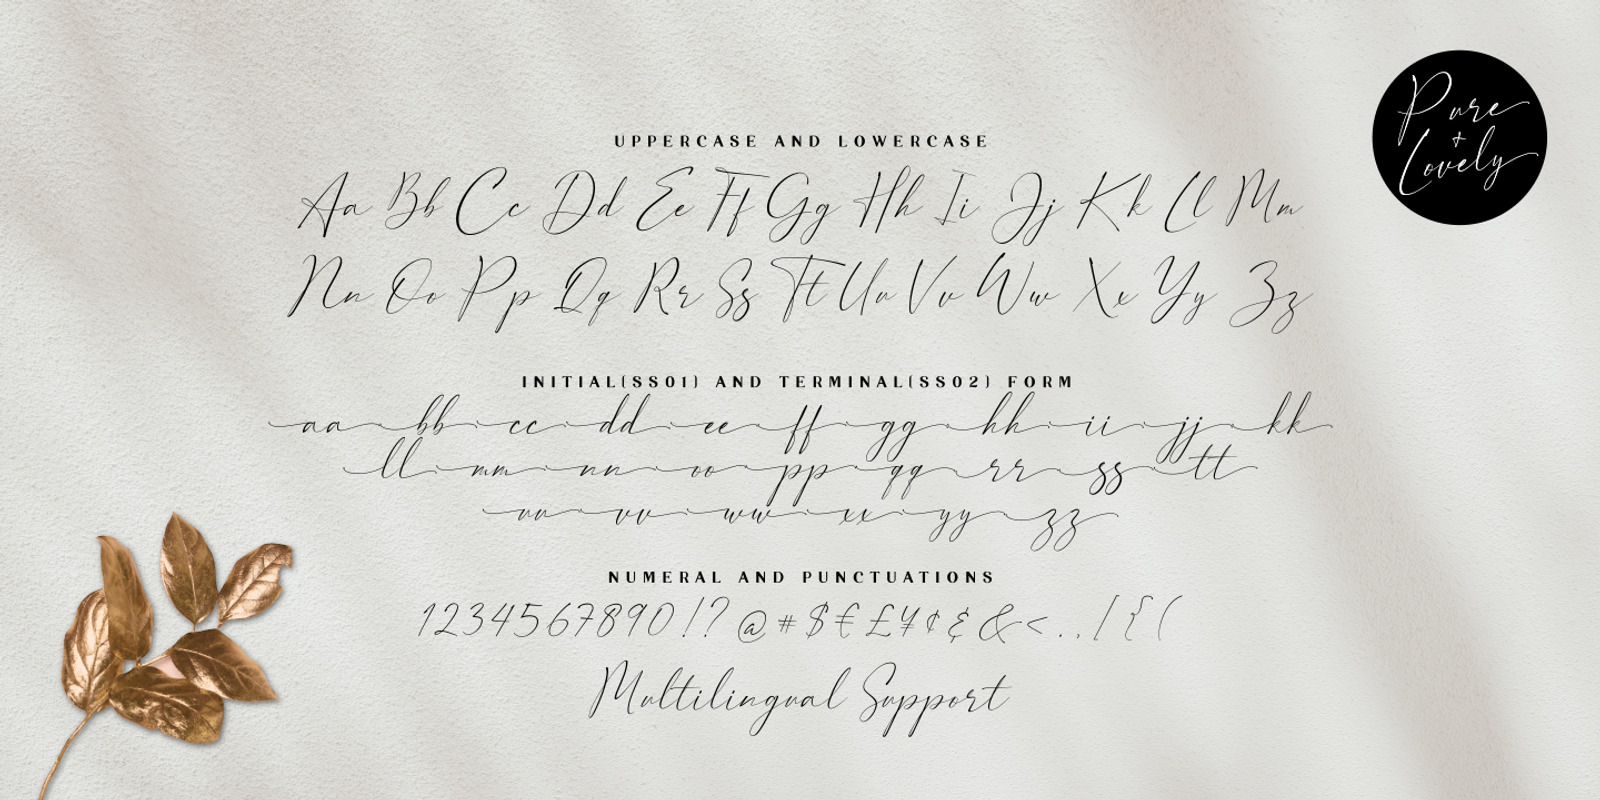 Pure
+
Lovely
UPPERCASE AND LOWERCASE
Aa Bb Cc Dd Ee Ff Gg Hh Ii Jj Kk Ll Mm
Nn Oo Pp Qq Rr Ss Tt Uu Vv Ww Xx Yy Zz
INITIAL(SS01) AND TERMINAL(SS02) FORM
aa bb cc dd ee ff gg hh ii jj kk
ll mm nn oo pp qq rr ss tt
uu vv ww xx yy zz
NUMERAL AND PUNCTUATIONS
1234567890!?@#$€£¥¢&&<.,[{(
Multilingual Support